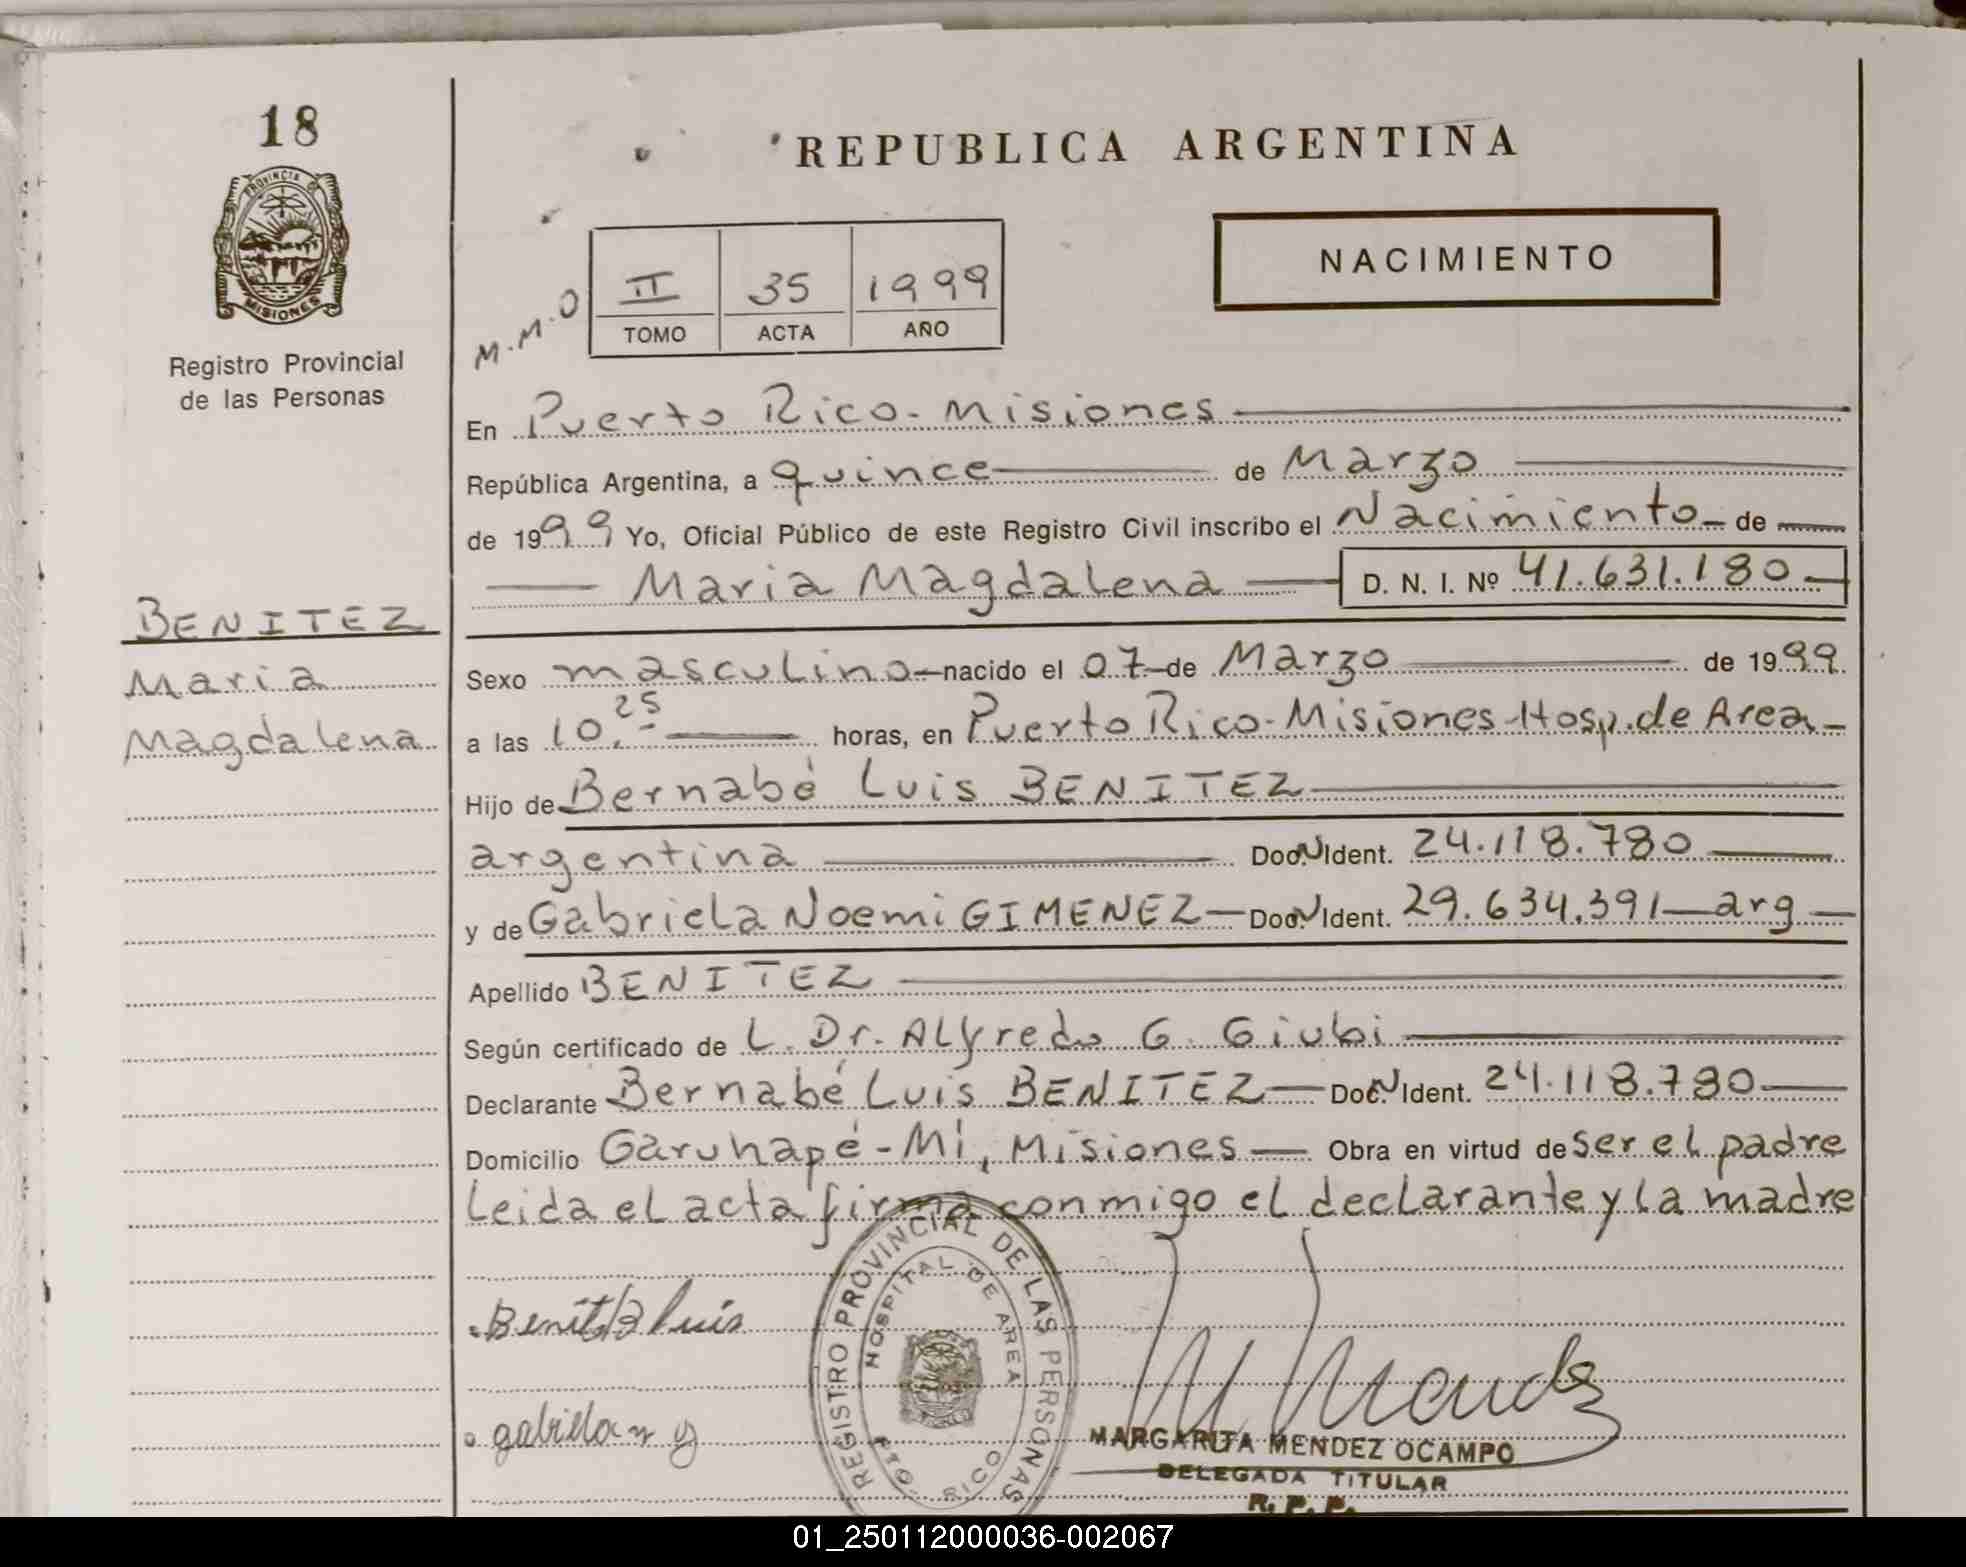 18
PROVINCIA DE
MISIONES
Registro Provincial
de las Personas
BENITEZ
Maria
Magdalena
REPUBLICA ARGENTINA
NACIMIENTO
M.M.O
II 35 1999
TOMO ACTA AÑO
En Puerto Rico - Misiones
República Argentina, a quince de Marzo
de 1999 Yo, Oficial Público de este Registro Civil inscribo el Nacimiento de
Maria Magdalena D. N. I. Nº 41.631.180
Sexo masculino nacido el 07 de Marzo de 1999
a las 10.25 horas, en Puerto Rico - Misiones - Hosp. de Area
Hijo de Bernabé Luis BENITEZ
argentina Doc. N Ident. 24.118.780
y de Gabriela Noemi GIMENEZ Doc. N Ident. 29.634.391 arg
Apellido BENITEZ
Según certificado de L. Dr. Alfredo G. Giubi
Declarante Bernabé Luis BENITEZ Doc. N Ident. 24.118.780
Domicilio Garuhapé - Mí, Misiones Obra en virtud de ser el padre
Leida el acta firma conmigo el declarante y la madre
REGISTRO PROVINCIAL DE LAS PERSONAS
HOSPITAL DE AREA
RICO
Benitez Luis
MARGARITA MENDEZ OCAMPO
DELEGADA TITULAR
R. P. P.
01_250112000036-002067